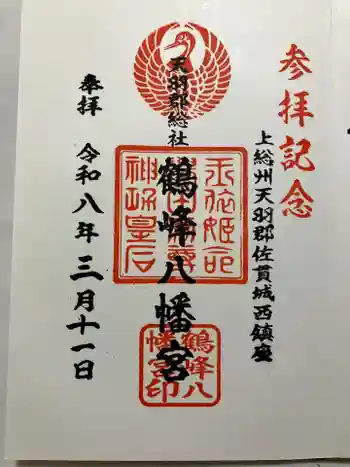 参拝記念
上総州天羽郡佐貫城西鎮座
天羽郡総社
鶴峰八幡宮
玉依姫命
神功皇后
鶴峰八
幡宮印
奉拝
令和八年三月十一日